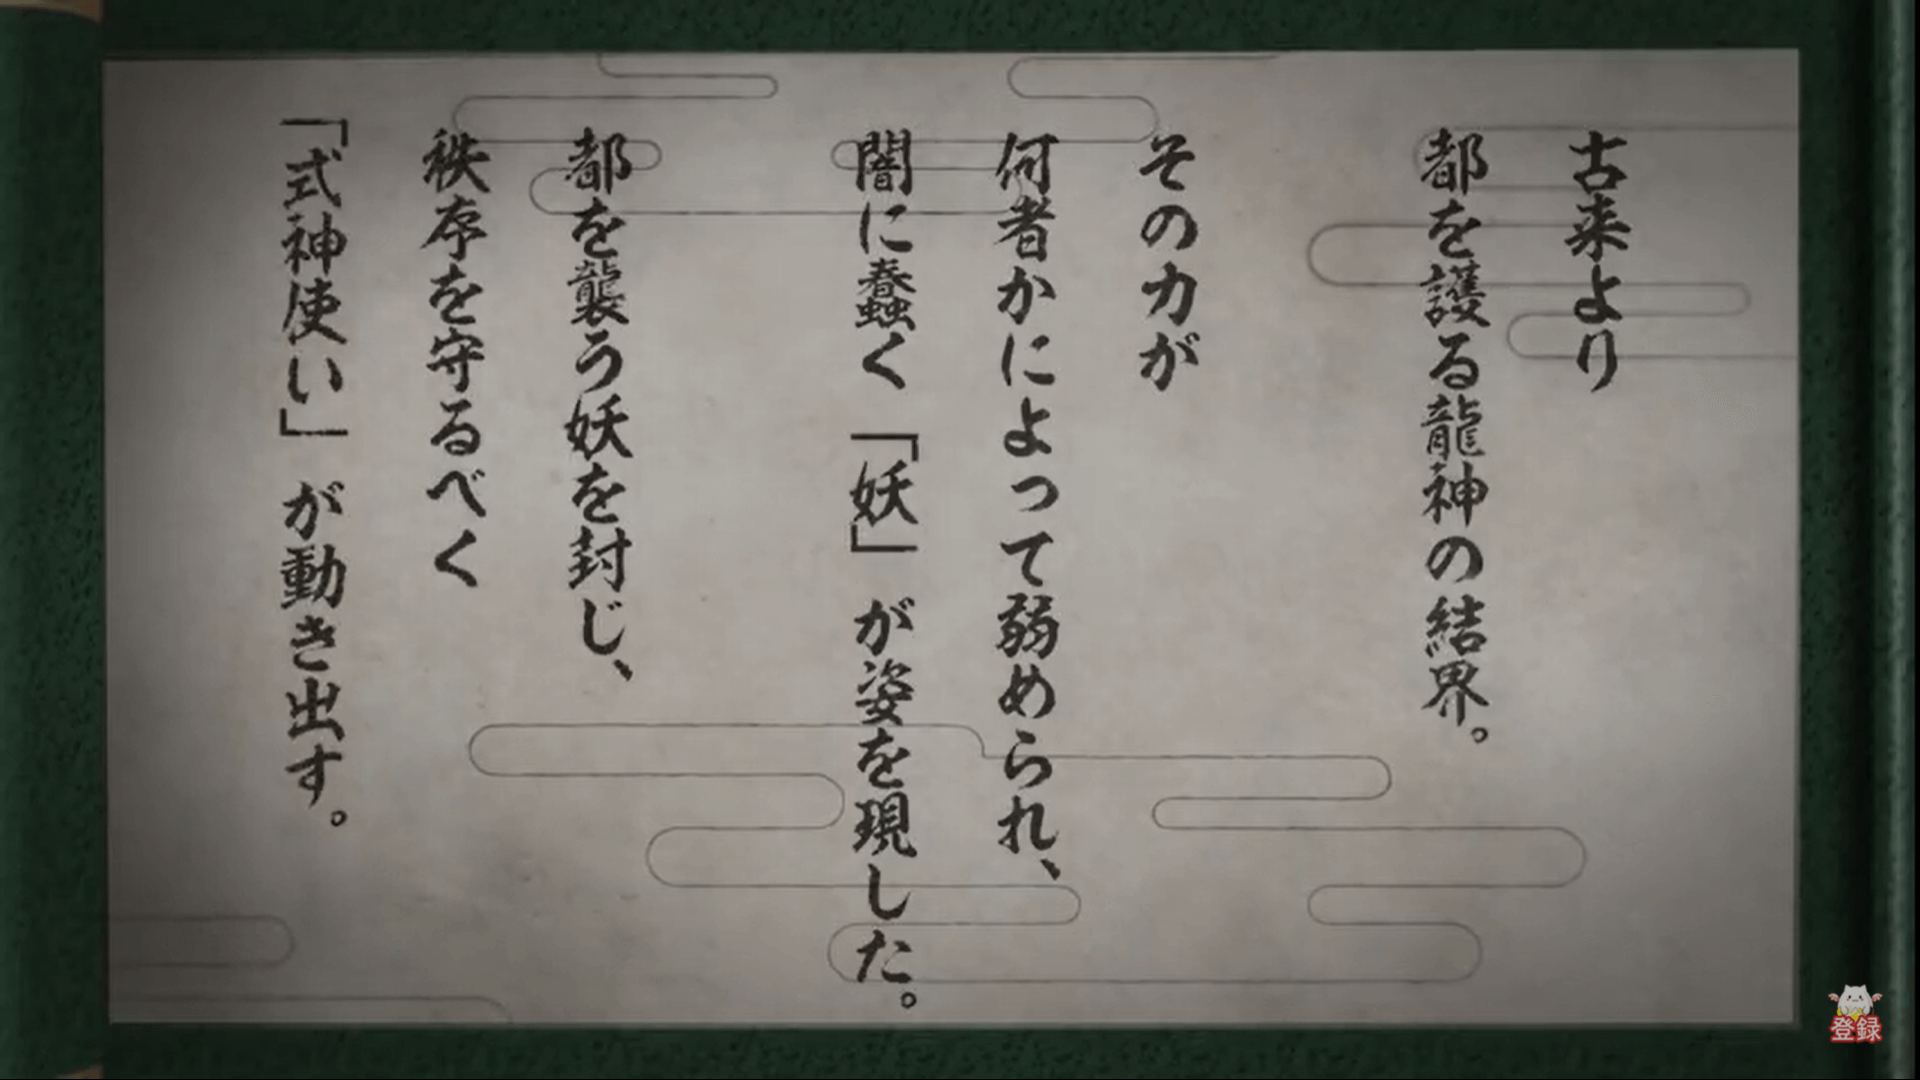 古来より
都を護る龍神の結界。
その力が
何者かによって弱められ、
闇に蠢く「妖」が姿を現した。
都を襲う妖を封じ、
秩序を守るべく
「式神使い」が動き出す。
登録